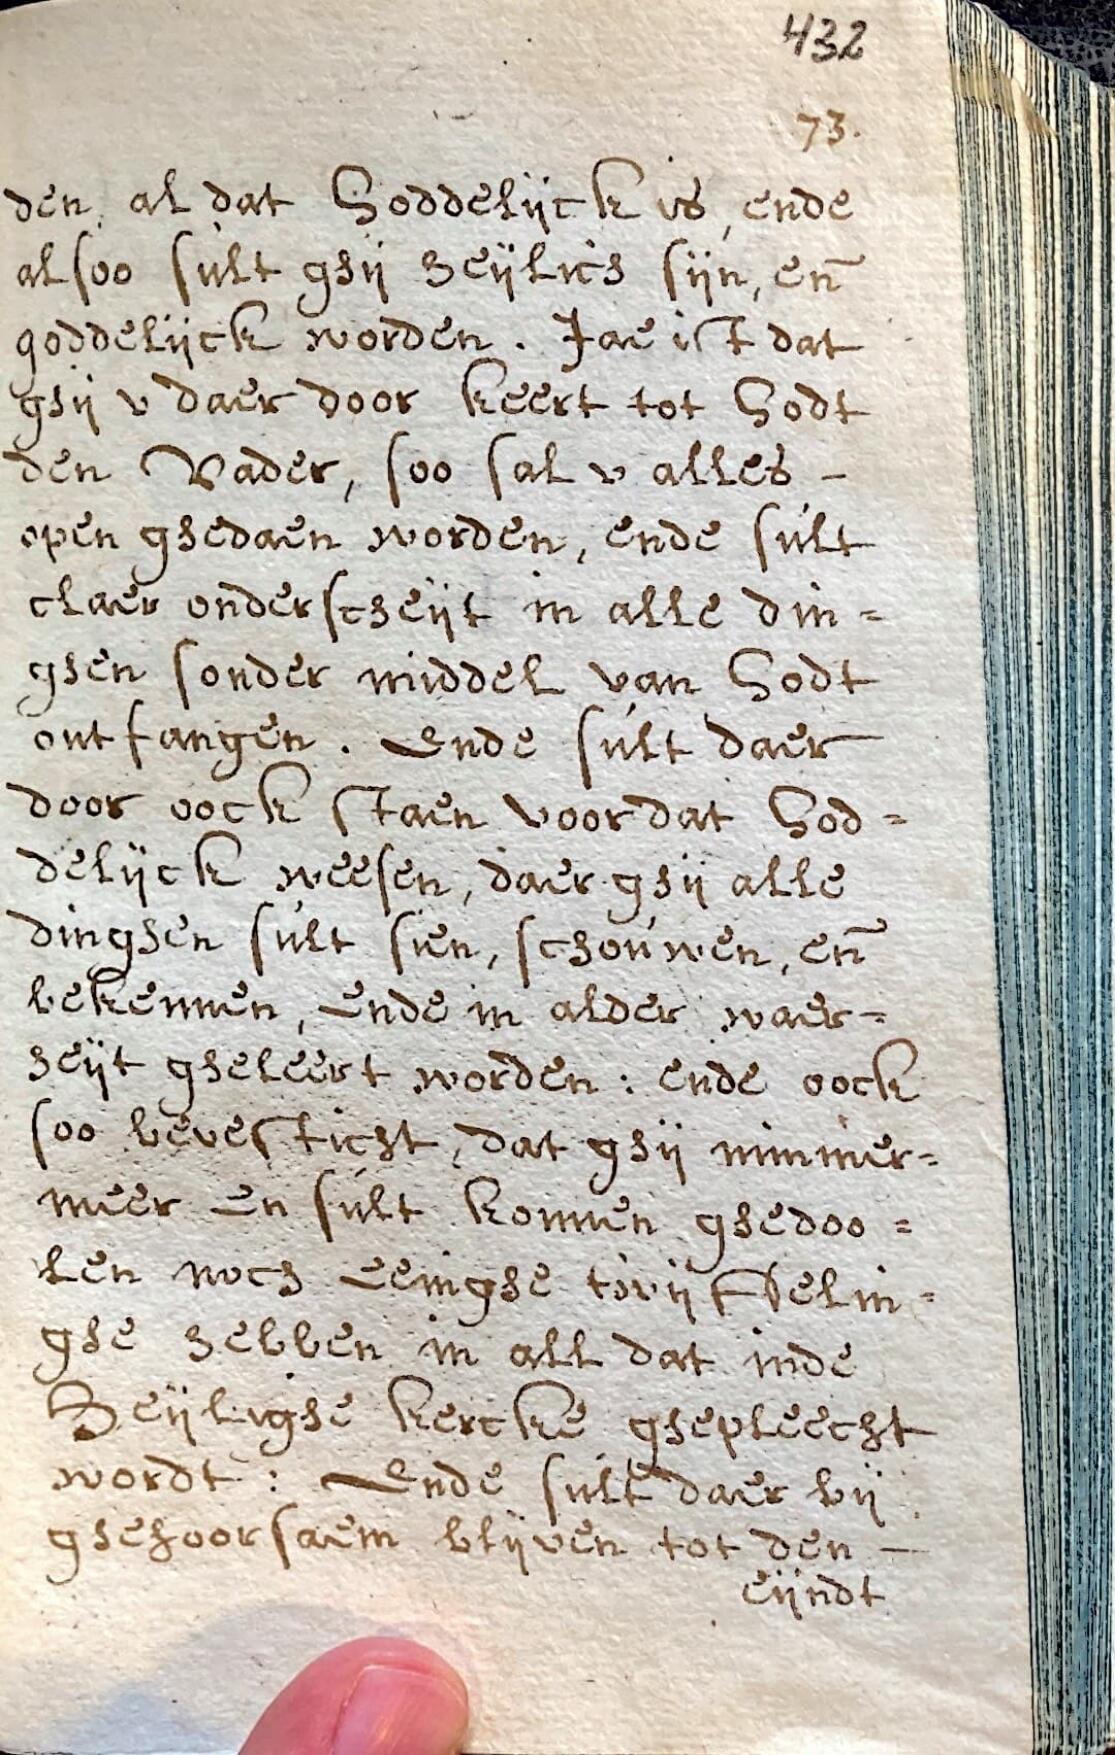 432
73.
den, al dat Goddelijck is, ende
alsoo sult ghij heijlich sijn, en̄
goddelijck worden. Jae ist dat
ghij v daer door keert tot Godt
den Vader, soo sal v alles -
open ghedaen worden, ende sult
claer onderscheijt in alle din =
ghen sonder middel van Godt
ontfangen. Ende sult daer
door oock staen voor dat God =
delijck weesen, daer ghij alle
dinghen sult sien, schouwen, en̄
bekennen, ende in alder waer =
heijt gheleert worden: ende oock
soo bevesticht, dat ghij nimmer =
meer en sult konnen ghedoo =
len noch eenighe twijffelin =
ghe hebben in all dat inde
Heijlighe kercke ghepleecht
wordt: Ende sult daer bij
ghehoorsaem blijven tot den -
eijndt